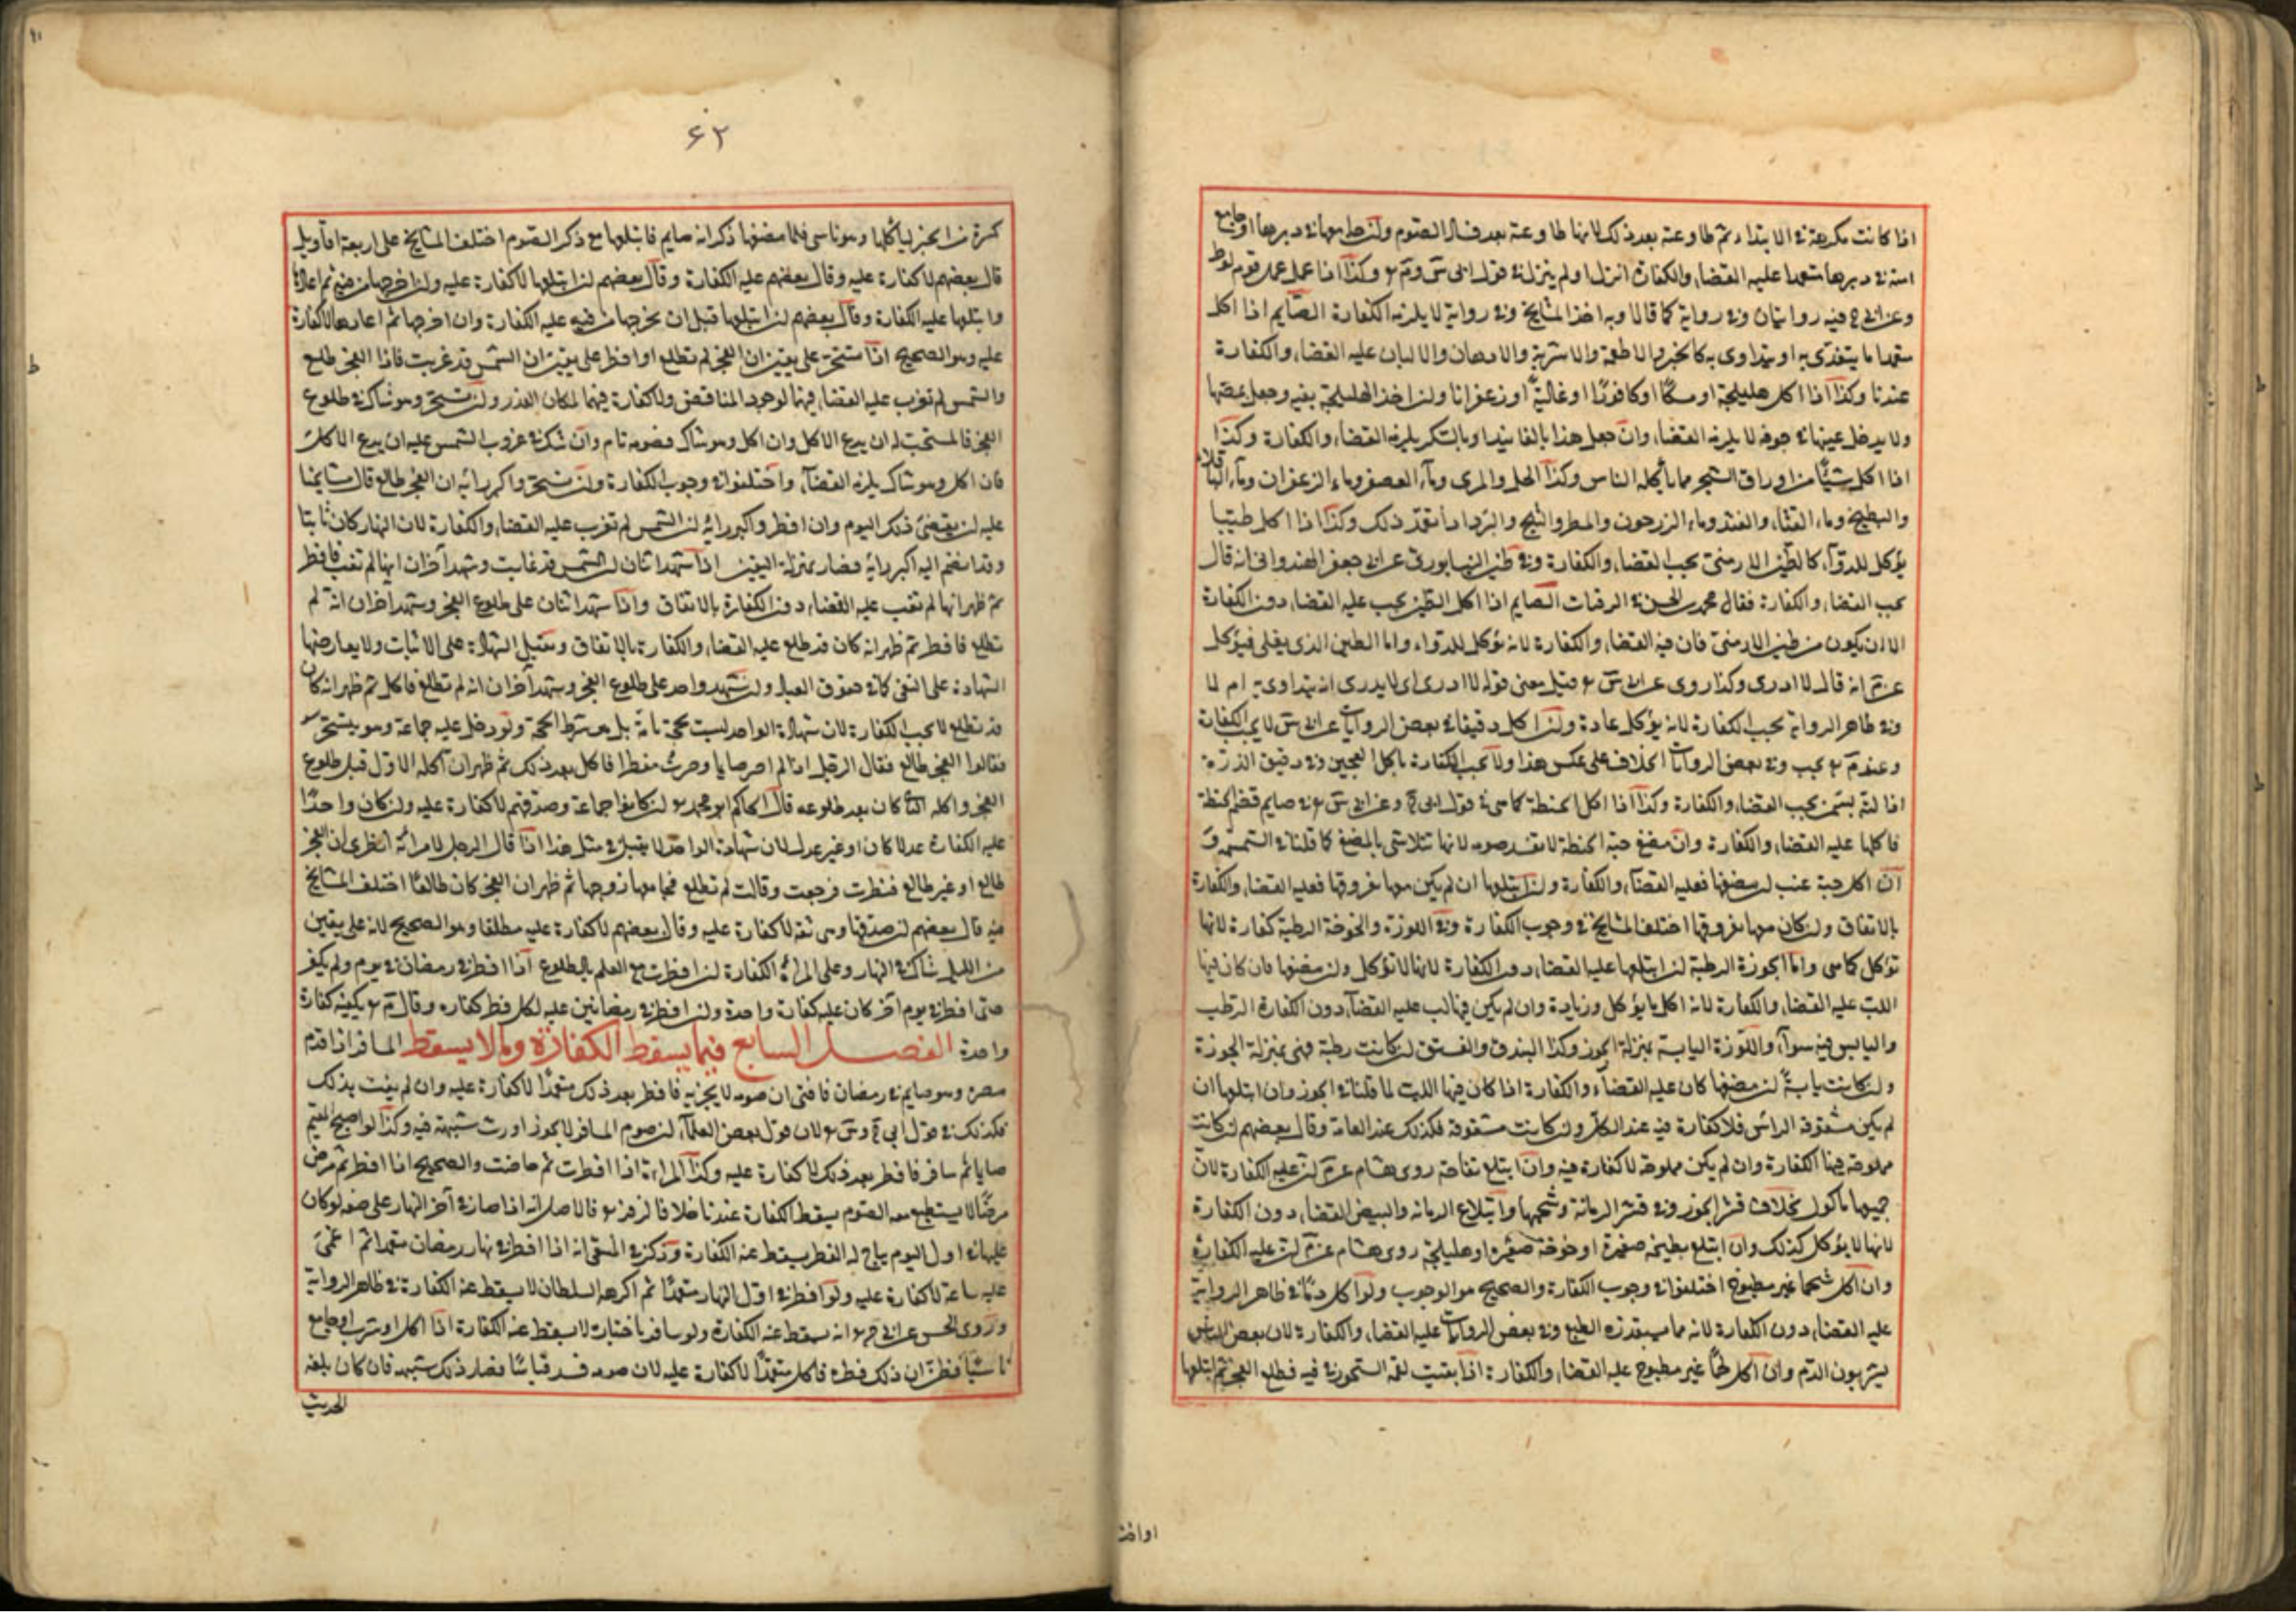 اذا كانت مكرهة في الابتداء ثم طاوعته بعد ذلك لانها طاوعته بعد فساد الصوم ولو جامعها في دبرها او جامع
امته في دبرها متعمدا عليه القضاء والكفارة انزل او لم ينزل في قول ابى س وم وكذا اذا عمل عمل قوم لوط
وعن ابى ح فيه روايتان وفي رواية كما قالا وبه اخذ المشايخ وفي رواية لا يلزمه الكفارة الصايم اذا اكل
متعمدا ما يتغذى به او يتداوى به كالخبز والاطعمة والاشربة والادهان والالبان عليه القضاء والكفارة
عندنا وكذا اذا اكل هليلجة او مسكا او كافورا او غالية او زعفرانا وان اخذ الهليلجة بفيه وجعل يمضغها
ولا يدخل عينها في جوفه لا يلزمه القضاء وان جعل هذا بالفانيذ او بالسكر يلزمه القضاء والكفارة وكذا
اذا اكل شيئا من اوراق الشجر مما يأكله الناس وكذا الخل والمرى وماء العصفر وماء الزعفران وماء الباقلاء
والبطيخ وماء القثاء والقثد وماء الزرجون والمطر والثلج والبرد اذا تعمد ذلك وكذا اذا اكل طينا
يؤكل للدواء كالطين الارمنى يجب القضاء والكفارة وفي طين النيسابورى عن ابى جعفر الهندوانى انه قال
يجب القضاء والكفارة فقال محمد بن الحسن في الرقيات الصايم اذا اكل الطين يجب عليه القضاء دون الكفارة
الا ان يكون من طين الارمنى فان فيه القضاء والكفارة لانه يؤكل للدواء واما الطين الذى يقلى فيؤكل
عن م انه قال لا ادرى وكذا روى عن ابى س قيل معنى قوله لا ادرى اى لا يدرى انه يتداوى به ام لا
وفي ظاهر الرواية يجب الكفارة لانه يؤكل عادة ولو اكل دقيقا في بعض الروايات عن ابى س لا يجب الكفارة
وعند م يجب وفي بعض الروايات الخلاف على عكس هذا ولا تجب الكفارة باكل العجين وفي دقيق الذرة
اذا لته بسمن يجب القضاء والكفارة وكذا اذا اكل الحنطة كما هى في قول ابى ح وعن ابى س في صايم قضم الحنطة
فاكلها عليه القضاء والكفارة وان مضغ حبة الحنطة لا يفسد صومه لانها تتلاشى بالمضغ كما قلنا في السمسمة و
ان اكل حبة عنب ان مضغها فعليه القضاء والكفارة وان ابتلعها ان لم يكن معها ثفروقها فعليه القضاء والكفارة
بالاتفاق وان كان معها ثفروقها اختلف المشايخ في وجوب الكفارة وفي اللوزة والخوخة الرطبة كفارة لانها
تؤكل كما هى واما الجوزة الرطبة ان ابتلعها عليه القضاء دون الكفارة لانها لا تؤكل وان مضغها فان كان فيها
اللب عليه القضاء والكفارة لانه اكل ما يؤكل وزيادة وان لم يكن فيها لب عليه القضاء دون الكفارة الرطب
واليابس فيه سواء واللوزة اليابسة بمنزلة الجوز وكذا البندق والفستق ان كانت رطبة فهى بمنزلة الجوزة
وان كانت يابسة ان مضغها كان عليه القضاء والكفارة اذا كان فيها اللب لما قلنا في الجوز وان ابتلعها ان
لم يكن مشقوقة الراس فلا كفارة فيه عند الكل وان كانت مشقوقة فكذلك عند العامة وقال بعضهم ان كانت
مملوحة فيها الكفارة وان لم يكن مملوحة لا كفارة فيه وان ابتلع تفاحة روى هشام عن م ان عليه الكفارة لان
جميعها ماكول بخلاف قشر الجوز وفي قشر الرمانة وشحمها وابتلاع الرمانة والبيض القضاء دون الكفارة
لانها لا يؤكل كذلك وان ابتلع بطيخة صغيرة او خوخة صغيرة او هليلجة روى هشام عن م ان عليه الكفارة
وان اكل شحما غير مطبوخ اختلفوا في وجوب الكفارة والصحيح هو الوجوب ولو اكل دما في ظاهر الرواية
عليه القضاء دون الكفارة لانه مما يستقذره الطبع وفي بعض الروايات عليه القضاء والكفارة لان بعض الناس
يشربون الدم وان اكل لحما غير مطبوخ عليه القضاء والكفارة اذا بقيت لقمة السحور في فيه فطلع الفجر ثم ابتلعها
٦٢
كسرة من الخبز لياكلها وهو ناسى فلما مضغها ذكر انه صايم فابتلعها مع ذكر الصوم اختلف المشايخ على اربعة اقاويل
قال بعضهم لا كفارة عليه وقال بعضهم عليه الكفارة وقال بعضهم ان ابتلعها لا كفارة عليه وان اخرجها من فيه ثم اعادها
وابتلعها عليه الكفارة وقال بعضهم ان ابتلعها قبل ان يخرجها من فيه عليه الكفارة وان اخرجها ثم اعادها لا كفارة
عليه وهو الصحيح اذا تسحر على يقين ان الفجر لم تطلع او افطر على يقين ان الشمس قد غربت فاذا الفجر طالع
والشمس لم تغرب عليه القضاء فيها لوجود المناقض ولا كفارة فيهما لمكان العذر وان تسحر وهو شاك في طلوع
الفجر فالمستحب له ان يدع الاكل وان اكل وهو شاك فصومه تام وان شك في غروب الشمس عليه ان يدع الاكل
فان اكل وهو شاك يلزمه القضاء واختلفوا في وجوب الكفارة وان تسحر واكبر رائه ان الفجر طالع قال مشايخنا
عليه ان يقضى ذلك اليوم وان افطر واكبر رائه ان الشمس لم تغرب عليه القضاء والكفارة لان النهار كان ثابتا
وقد انضم اليه اكبر رائه فصار بمنزلة اليقين اذا شهد اثنان ان الشمس قد غابت وشهد آخران انها لم تغب فافطر
ثم ظهر انها لم تغب عليه القضاء دون الكفارة بالاتفاق واذا شهد اثنان على طلوع الفجر وشهد آخران انه لم
تطلع فافطر ثم ظهر انه كان قد طلع عليه القضاء والكفارة بالاتفاق وتقبل الشهادة على الاثبات ولا يعارضها
الشهادة على النفى كما في حقوق العباد ولو شهد واحد على طلوع الفجر وشهد آخران انه لم تطلع فاكل ثم ظهر انه كان
قد تطلع لا يجب الكفارة لان شهادة الواحد ليست بحجة تامة بل هو شرط الحجة ولو دخل عليه جماعة وهو يتسحر
فقالوا الفجر طالع فقال الرجل اذا لم اصر صايما وصرت مفطرا فاكل بعد ذلك ثم ظهر ان اكله الاول قبل طلوع
الفجر واكله الثانى كان بعد طلوعه قال الحاكم ابو محمد ان كانوا جماعة وصدقهم لا كفارة عليه وان كان واحدا
عليه الكفارة عدلا كان او غير عدل لان شهادة الواحد لا يقبل في مثل هذا اذا قال الرجل لامراته انظرى ان الفجر
طالع او غير طالع فنظرت فرجعت وقالت لم تطلع فجامعها زوجها ثم ظهر ان الفجر كان طالعا اختلف المشايخ
فيه قال بعضهم ان صدقها وهى ثقة لا كفارة عليه وقال بعضهم لا كفارة عليه مطلقا وهو الصحيح لانه على يقين
من الليل شاك في النهار وعلى المراة الكفارة ان افطرت مع العلم بالطلوع اذا افطر في رمضان في يوم ولم يكفر
حتى افطر في يوم آخر كان عليه كفارة واحدة وان افطر في رمضانين عليه لكل فطر كفارة وقال م يكفيه كفارة
واحدة الفصل السابع فيما يسقط الكفارة وما لا يسقط المسافر اذا قدم
مصره وهو صايم في رمضان فافتى ان صومه لا يجزيه فافطر بعد ذلك متعمدا لا كفارة عليه وان لم يفت بذلك
فكذلك في قول ابى ح وس لان قول بعض العلماء ان صوم المسافر لا يجوز اورث شبهة فيه وكذا لو اصبح المقيم
صايما ثم سافر فافطر بعد ذلك لا كفارة عليه وكذا المراة اذا افطرت ثم حاضت والصحيح اذا افطر ثم مرض
مرضا لا يستطيع معه الصوم يسقط الكفارة عندنا خلافا لزفر فالاصل انه اذا صار في آخر النهار على صفة لو كان
عليها في اول اليوم يباح له الفطر يسقط عنه الكفارة وذكر في المنتقى انه اذا افطر في نهار رمضان متعمدا ثم اغمى
عليه ساعة لا كفارة عليه ولو افطر في اول النهار متعمدا ثم اكرهه السلطان لا يسقط عنه الكفارة في ظاهر الرواية
وروى الحسن عن ابى ح انه يسقط عنه الكفارة ولو سافر باختياره لا يسقط عنه الكفارة اذا اكل او شرب او جامع
ناسيا فظن ان ذلك فطره فاكل متعمدا لا كفارة عليه لان صومه فسد قياسا فصار ذلك شبهة فان كان بلغه
الحديث